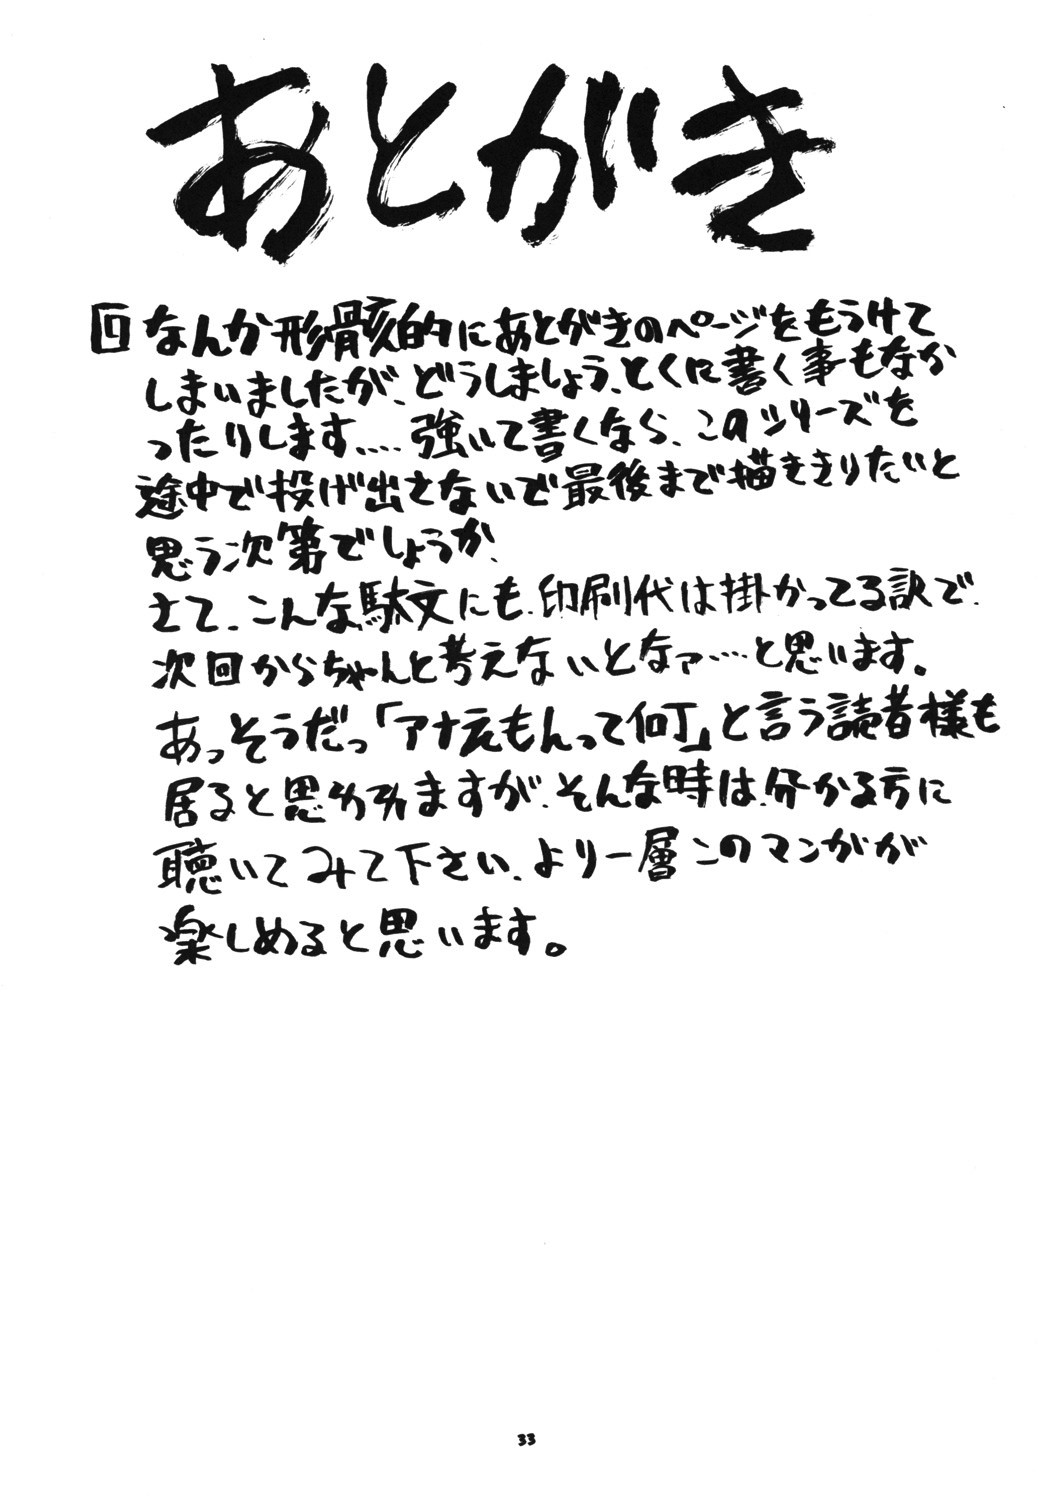 あとがき
回なんか形骸的にあとがきのページをもうけて
しまいましたが、どうしましょう、とくに書く事もなか
ったりします‥‥強いて書くなら、このシリーズを
途中で投げ出さないで最後まで描ききりたいと
思う次第でしょうか、
さて、こんな駄文にも、印刷代は掛かってる訳で、
次回からちゃんと考えないとなァ‥‥と思います。
あっそうだっ「アナえもんって何」と言う読者様も
居ると思われますが、そんな時は、分かる方に
聴いてみて下さい、より一層このマンガが
楽しめると思います。
33